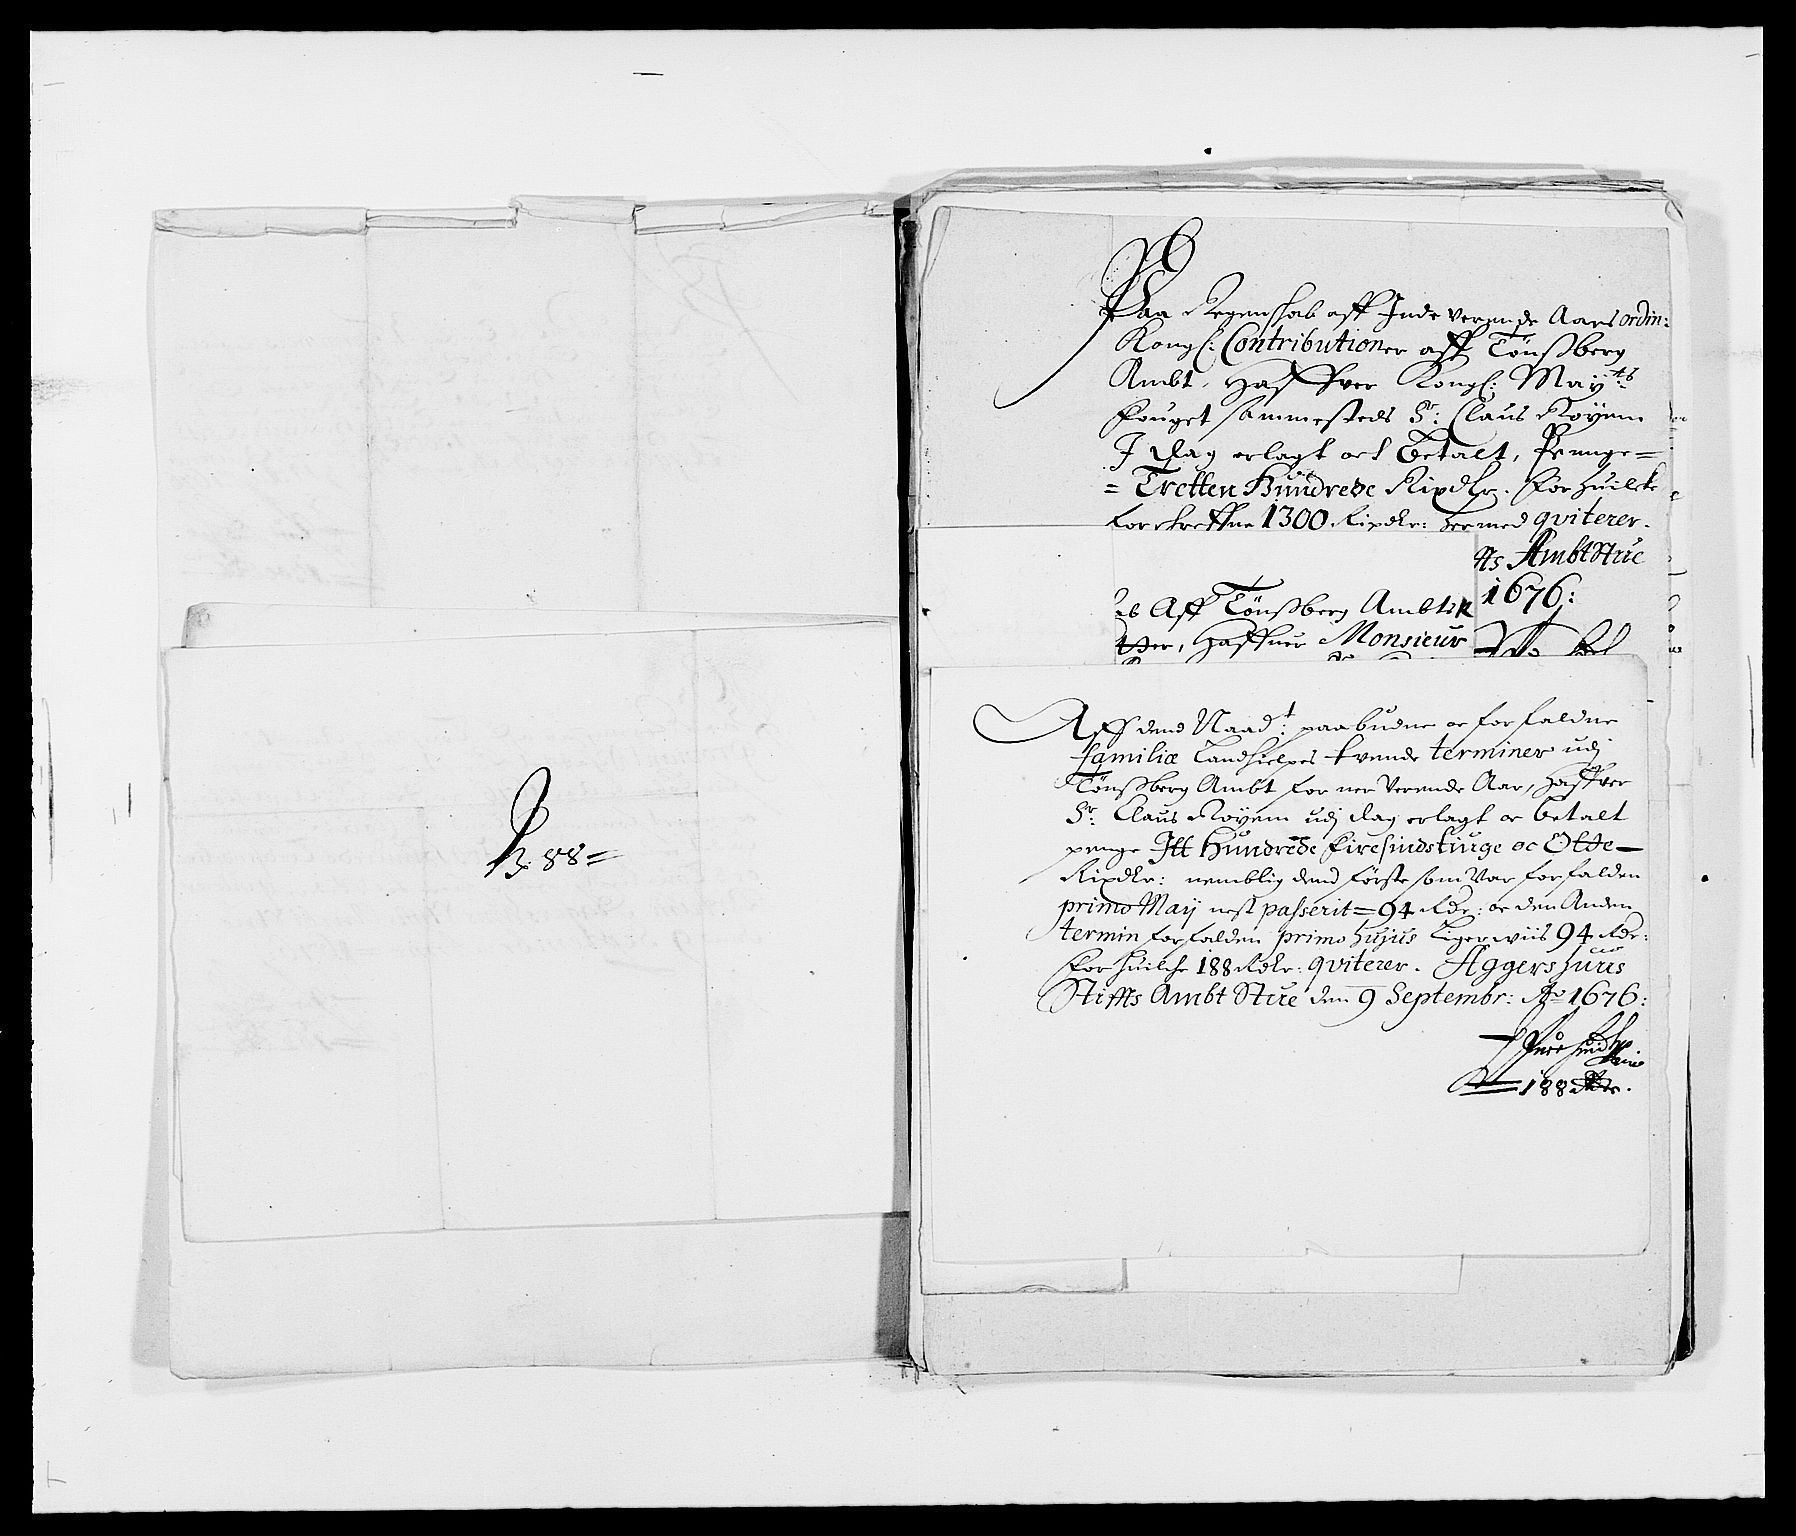 88=
Paa Regenschab aff Inde Verende Aars ordin:
Kongl: Contributioner aff Tönsberg
Ambt, Haffver Kongl: May.ts
Fouget sammesteds Sr: Claus Röyem
I dag erlagt och Betalt, Penge=
= Tretten Hundrede Rixdlr. for huilcke
forskreffne 1300 Rixdlr: hermed qviterer.
fts Ambt Stue
1676:
ab Aff Tönsberg Ambts
ter, Haffuer Monsieur
Aff dend Naadt: paabudne oc forfaldne
familiæ Landhielpes tvende terminer udj
Tönsberg Ambt for nerverende Aar, Haffver
Sr: Claus Röyem udj dag erlagt oc betalt
penge Itt Hundrede firesindstiuge oc Otte
Rixdlr: nemblig dend förste som Var forfalden
primo May nest passerit = 94 Rdr: oc den Anden
termin forfalden primo hujus ligerwiis 94 Rdr:
for huilche 188 Rdlr: qviterer. Aggershuus
Stiffts Ambt Stue den 9 Septembr: Ao 1676:
188 Rdr.